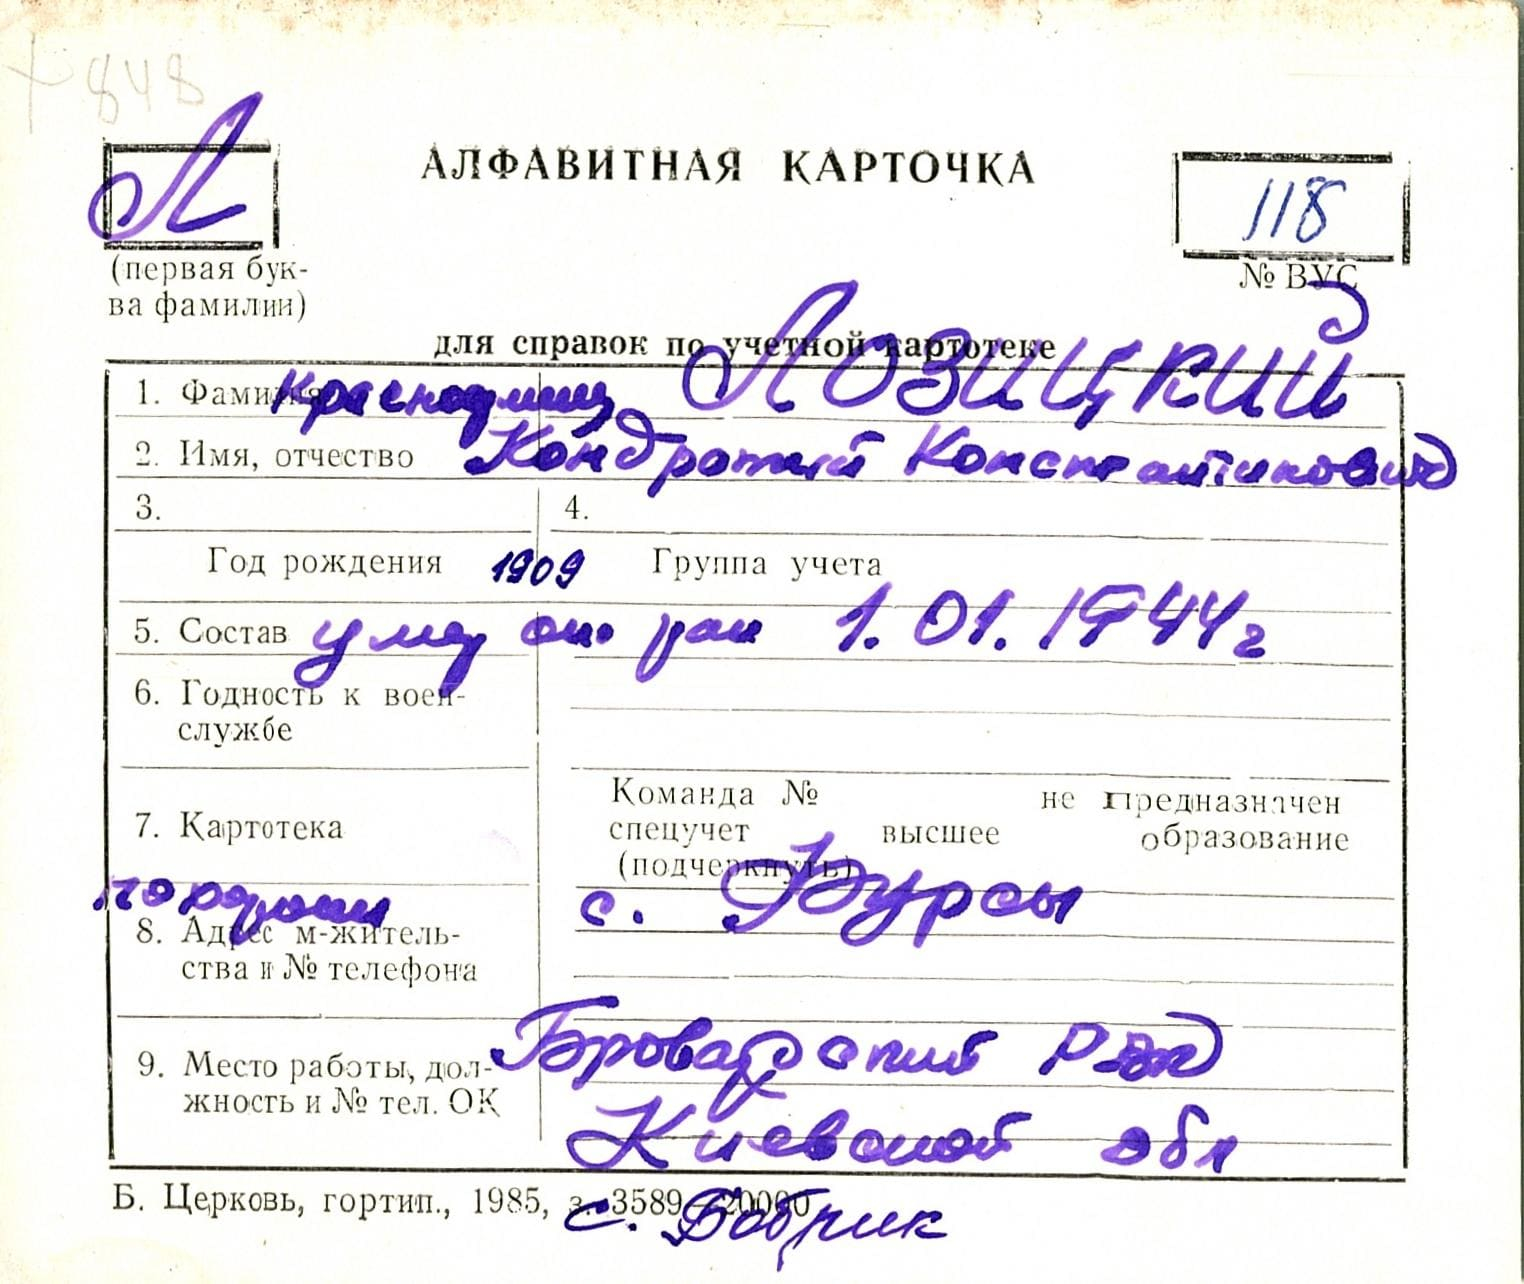 848
Л
АЛФАВИТНАЯ КАРТОЧКА
118
(первая бук-
ва фамилии)
№ ВУС
для справок по учетной картотеке
1. Фамилия Красноармеец ЛОЗИЦКИЙ
2. Имя, отчество Кондратий Константинович
3. 4.
Год рождения 1909 Группа учета
5. Состав умер от ран 1.01.1944 г
6. Годность к воен-
службе
7. Картотека
Команда № не предназначен
спецучет высшее образование
(подчеркнуть)
похорон с.
8. Адрес м-житель-
ства и № телефона
9. Место работы, дол-
жность и № тел. ОК
Броварский р-он
Киевской обл
Б. Церковь, гортип., 1985, з. 3589—20000
с. Бобрик